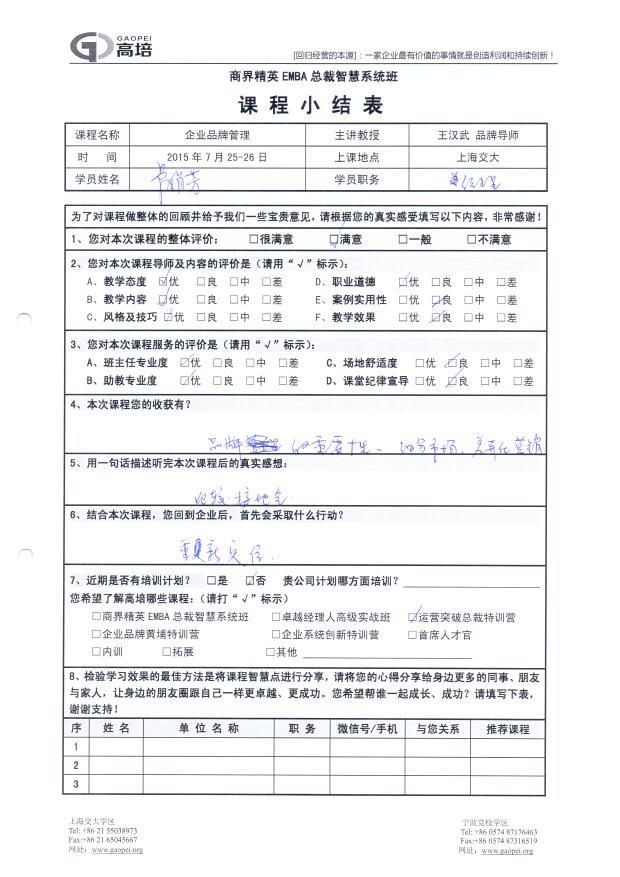 GAOPEI
高培
[回归经营的本源]:一家企业最有价值的事情就是创造利润和持续创新!
商界精英 EMBA 总裁智慧系统班
课 程 小 结 表
课程名称 企业品牌管理 主讲教授 王汉武 品牌导师
时 间 2015 年 7 月 25-26 日 上课地点 上海交大
学员姓名 学员职务
为了对课程做整体的回顾并给予我们一些宝贵意见,请根据您的真实感受填写以下内容,非常感谢!
1、您对本次课程的整体评价: □很满意 ☑满意 □一般 □不满意
2、您对本次课程导师及内容的评价是(请用“√”标示):
A、教学态度 ☑优 □良 □中 □差 D、职业道德 ☑优 □良 □中 □差
B、教学内容 ☑优 □良 □中 □差 E、案例实用性 □优 ☑良 □中 □差
C、风格及技巧 ☑优 □良 □中 □差 F、教学效果 □优 ☑良 □中 □差
3、您对本次课程服务的评价是(请用“√”标示):
A、班主任专业度 ☑优 □良 □中 □差 C、场地舒适度 □优 ☑良 □中 □差
B、助教专业度 ☑优 □良 □中 □差 D、课堂纪律宣导 □优 ☑良 □中 □差
4、本次课程您的收获有?
品牌 的重要性、细分市场,差异化营销
5、用一句话描述听完本次课程后的真实感想:
比较接地气
6、结合本次课程,您回到企业后,首先会采取什么行动?
重新定位.
7、近期是否有培训计划? □是 ☑否 贵公司计划哪方面培训?
您希望了解高培哪些课程:(请打“√”标示)
□商界精英 EMBA 总裁智慧系统班 □卓越经理人高级实战班 ☑运营突破总裁特训营
□企业品牌黄埔特训营 □企业系统创新特训营 □首席人才官
□内训 □拓展 □其他
8、检验学习效果的最佳方法是将课程智慧点进行分享,请将您的心得分享给身边更多的同事、朋友
与家人,让身边的朋友圈跟自己一样更卓越、更成功。您希望帮谁一起成长、成功?请填写下表,
谢谢支持!
序 姓 名 单 位 名 称 职 务 微信号/手机 与您关系 推荐课程
1
2
3
上海交大学区 宁波党校学区
Tel: +86 21 55038973 Tel: +86 0574 87176463
Fax:+86 21 65045667 Fax:+86 0574 87316519
网址: www.gaopei.org 网址: www.gaopei.org